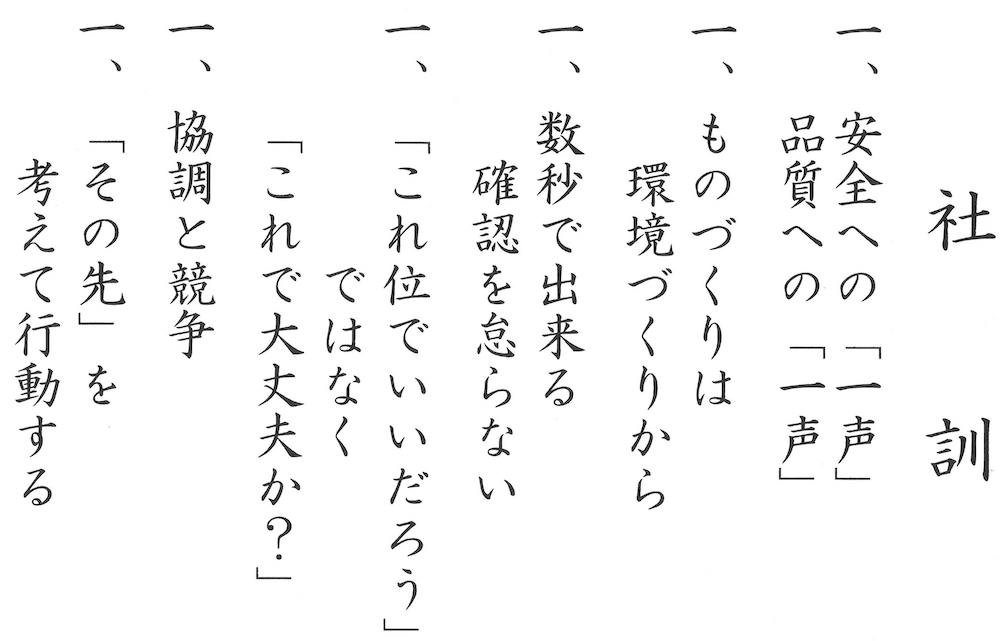 社訓
一、安全への「一声」
品質への「一声」
一、ものづくりは
環境づくりから
一、数秒で出来る
確認を怠らない
一、「これ位でいいだろう」
ではなく
「これで大丈夫か？」
一、協調と競争
一、「その先」を
考えて行動する